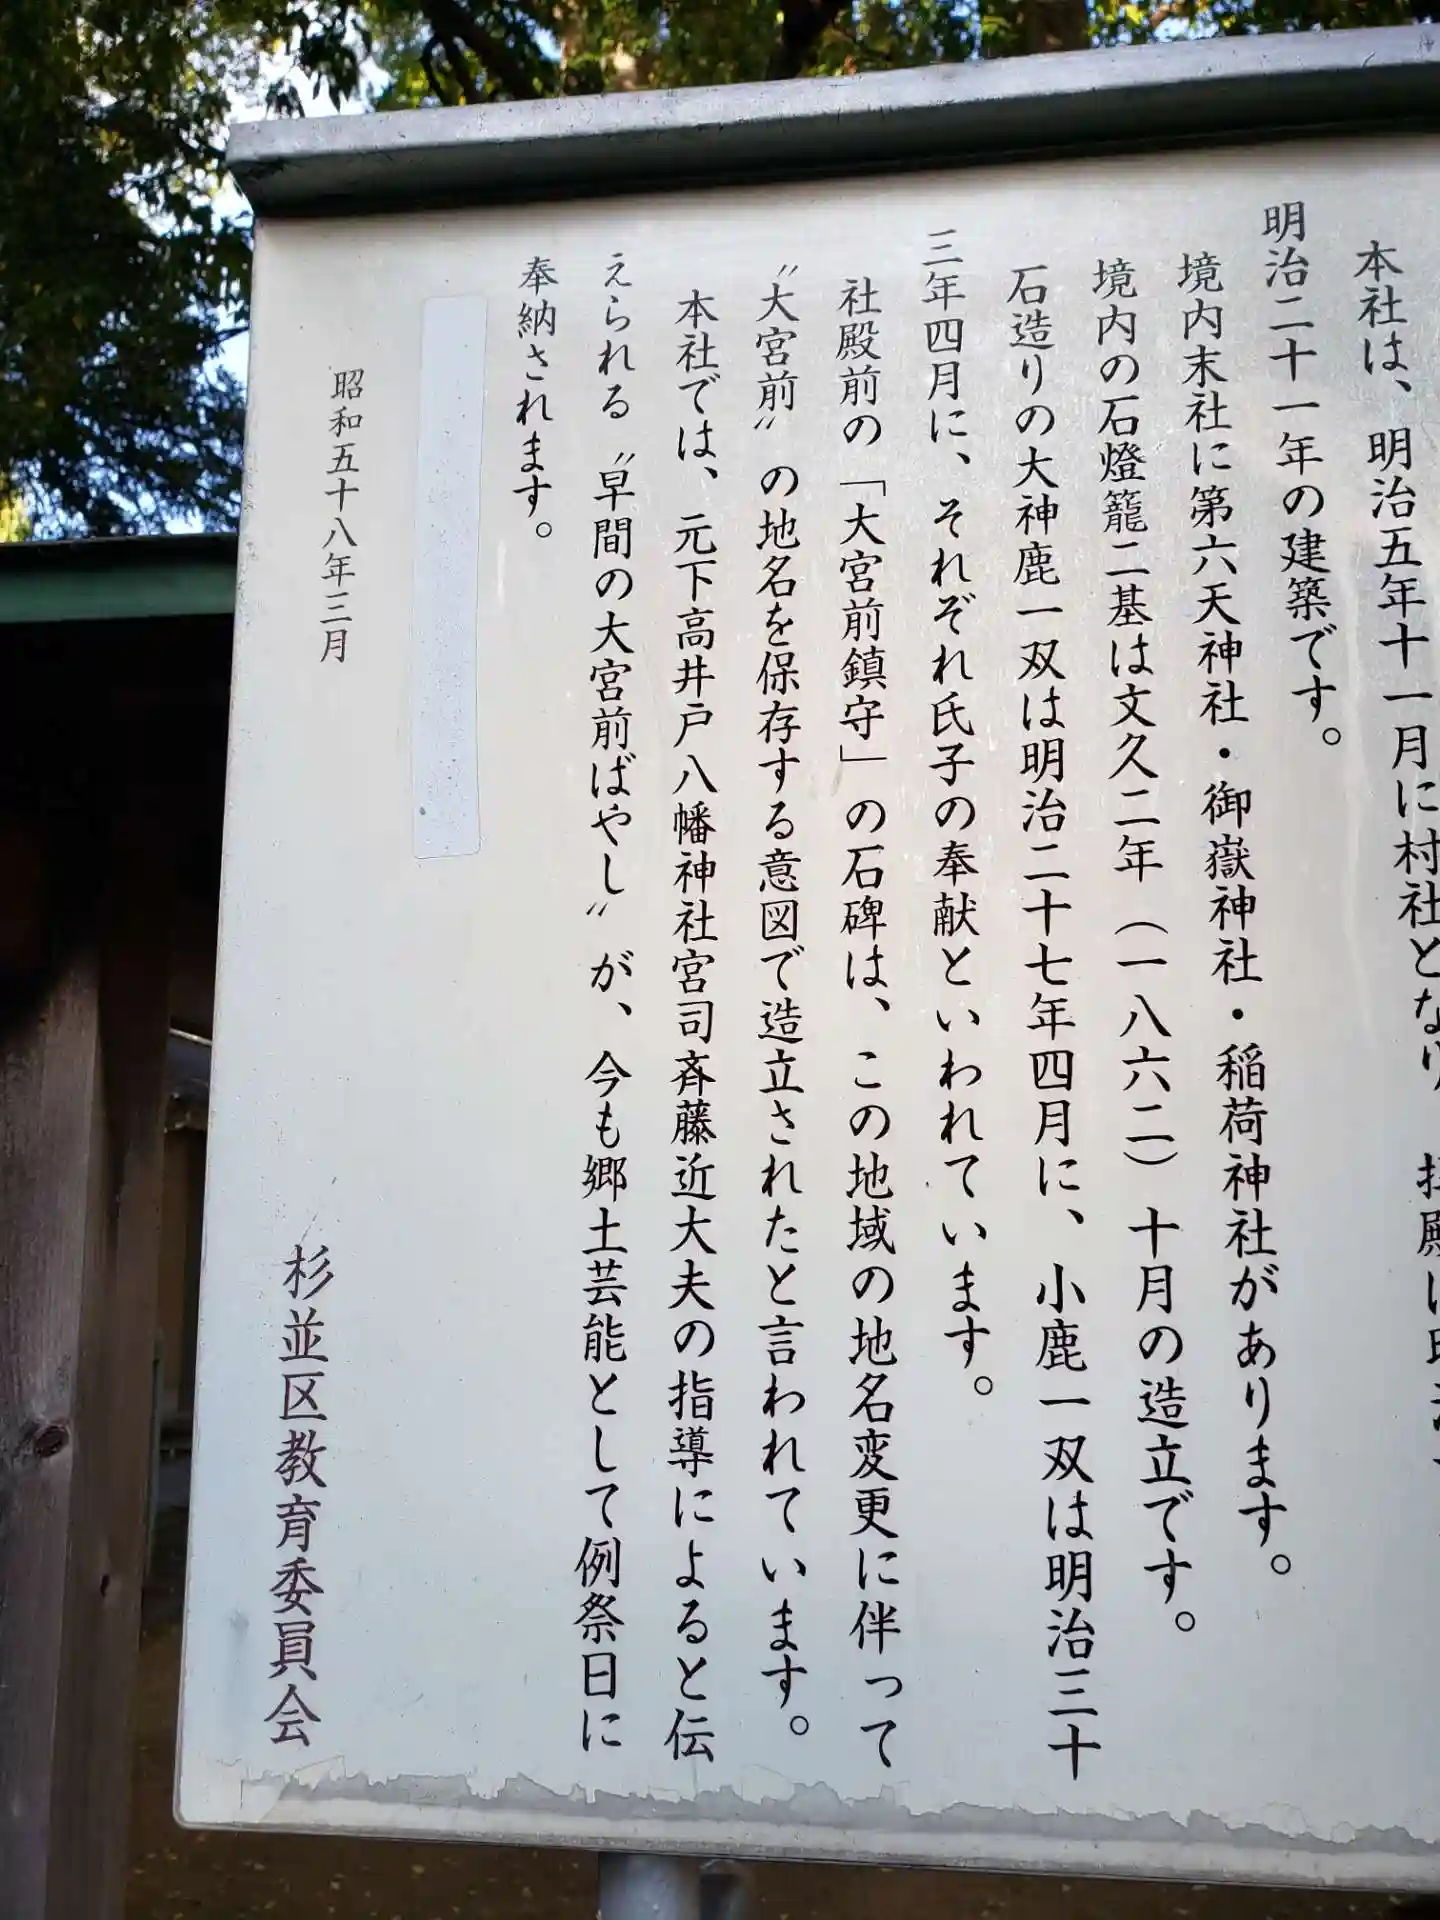 本社は、明治五年十一月に村社となり
明治二十一年の建築です。
境内末社に第六天神社・御嶽神社・稲荷神社があります。
境内の石燈籠二基は文久二年（一八六二）十月の造立です。
石造りの大神鹿一双は明治二十七年四月に、小鹿一双は明治三十
三年四月に、それぞれ氏子の奉献といわれています。
社殿前の「大宮前鎮守」の石碑は、この地域の地名変更に伴って
〝大宮前〟の地名を保存する意図で造立されたと言われています。
本社では、元下高井戸八幡神社宮司斉藤近大夫の指導によると伝
えられる〝早間の大宮前ばやし〟が、今も郷土芸能として例祭日に
奉納されます。
昭和五十八年三月
杉並区教育委員会